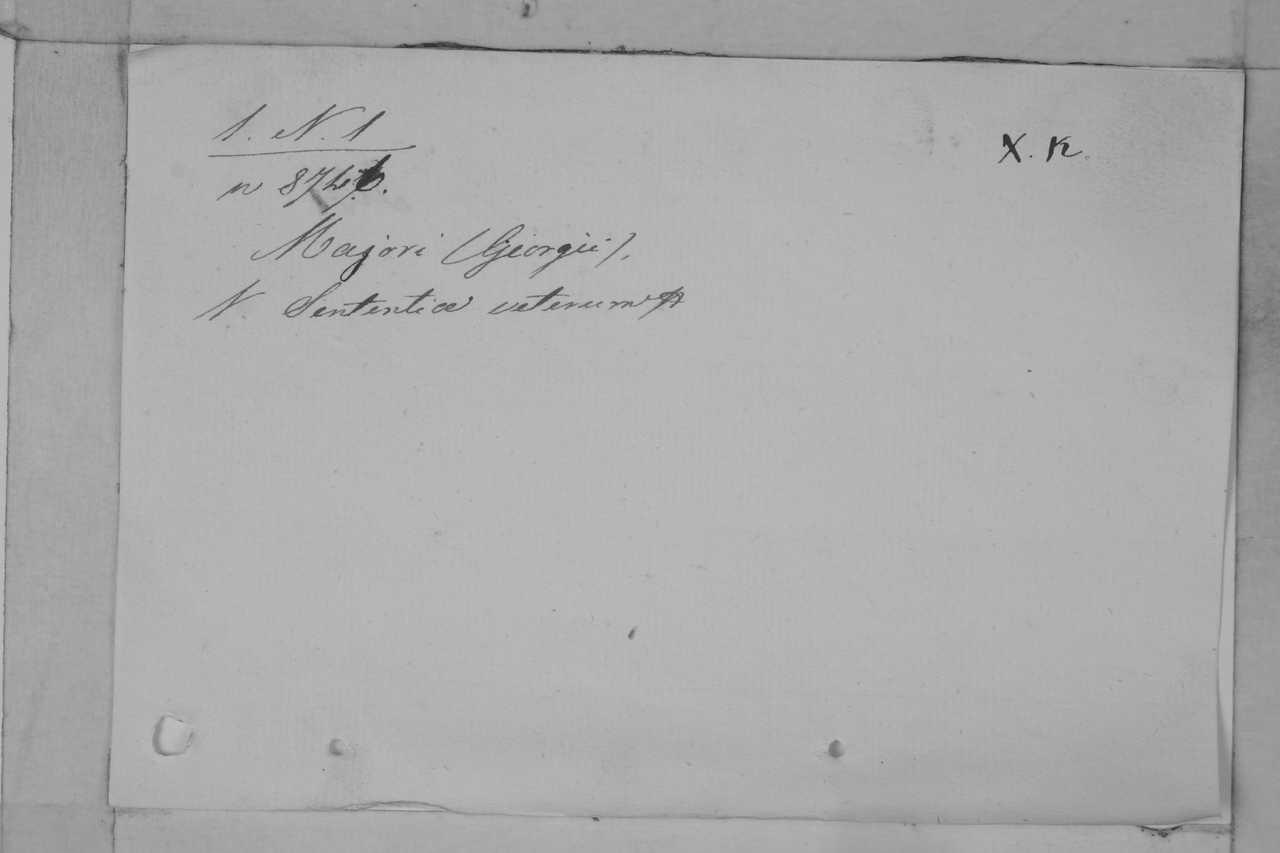 1. N. 1
X. K.
n 874
Majori (Georgii).
V. Sententiæ veterum